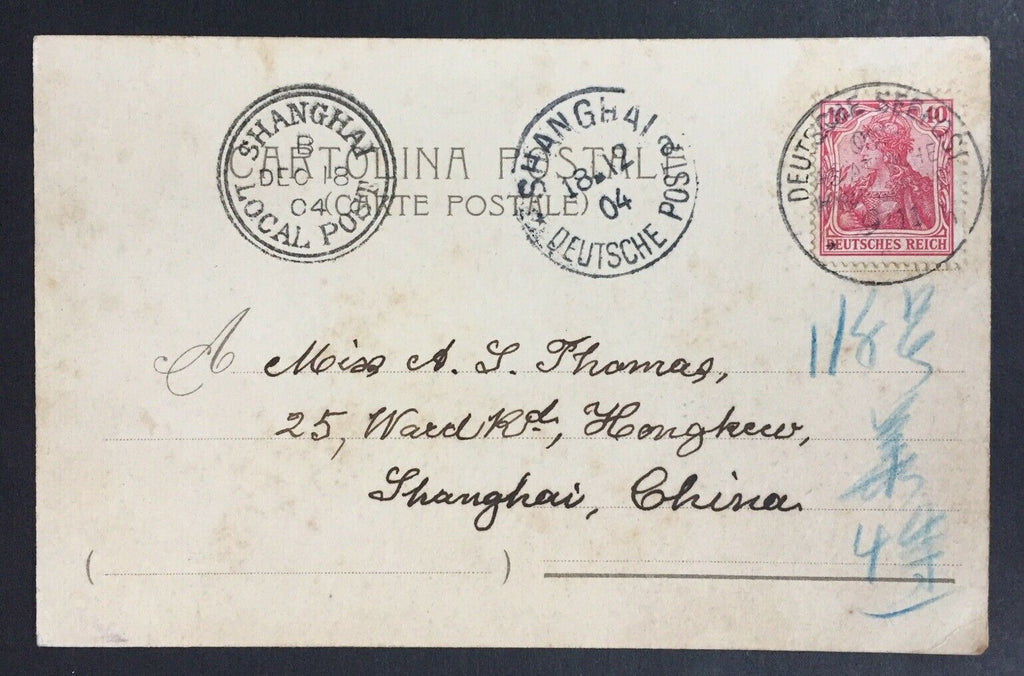 SHANGHAI
B
DEC 18
04
LOCAL POST
SHANGHAI
18.12
04
DEUTSCHE POST a
10 10
DEUTSCHES REICH
DEUTSCHE SEEPOST
CARTOLINA POSTALE
(CARTE POSTALE)
A Miss A. S. Thomas,
25, Ward Rd, Hongkew,
Shanghai, China
118号
4等
( )